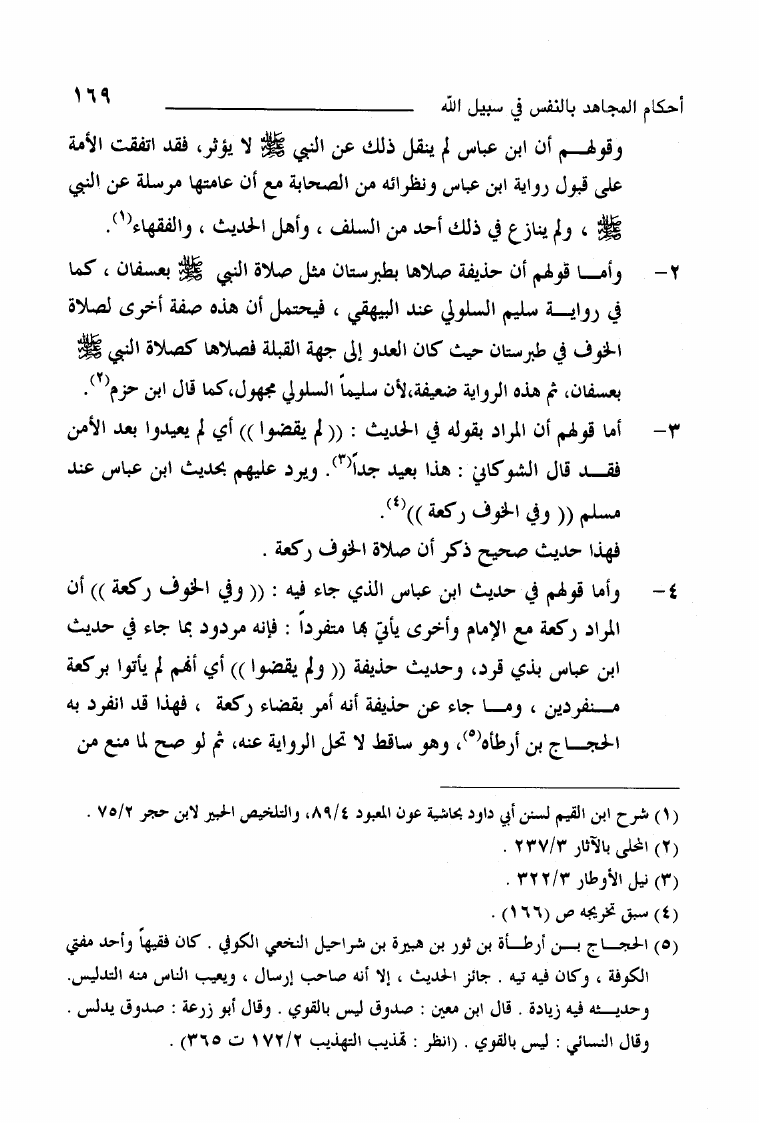 أحكام المجاهد بالنفس في سبيل الله ١٦٩
وقولهم أن ابن عباس لم ينقل ذلك عن النبي ﷺ لا يؤثر، فقد اتفقت الأمة
على قبول رواية ابن عباس ونظرائه من الصحابة مع أن عامتها مرسلة عن النبي
ﷺ ، ولم ينازع في ذلك أحد من السلف ، وأهل الحديث ، والفقهاء(١).
٢- وأما قولهم أن حذيفة صلاها بطبرستان مثل صلاة النبي ﷺ بعسفان ، كما
في رواية سليم السلولي عند البيهقي ، فيحتمل أن هذه صفة أخرى لصلاة
الخوف في طبرستان حيث كان العدو إلى جهة القبلة فصلاها كصلاة النبي ﷺ
بعسفان، ثم هذه الرواية ضعيفة،لأن سليماً السلولي مجهول،كما قال ابن حزم(٢).
٣- أما قولهم أن المراد بقوله في الحديث : (( لم يقضوا )) أي لم يعيدوا بعد الأمن
فقد قال الشوكاني : هذا بعيد جداً(٣). ويرد عليهم بحديث ابن عباس عند
مسلم (( وفي الخوف ركعة ))(٤).
فهذا حديث صحيح ذكر أن صلاة الخوف ركعة .
٤- وأما قولهم في حديث ابن عباس الذي جاء فيه : (( وفي الخوف ركعة )) أن
المراد ركعة مع الإمام وأخرى يأتي بها متفرداً : فإنه مردود بما جاء في حديث
ابن عباس بذي قرد، وحديث حذيفة (( ولم يقضوا )) أي أنهم لم يأتوا بركعة
منفردين ، وما جاء عن حذيفة أنه أمر بقضاء ركعة ، فهذا قد انفرد به
الحجاج بن أرطأه(٥)، وهو ساقط لا تحل الرواية عنه، ثم لو صح لما منع من
(١) شرح ابن القيم لسنن أبي داود بحاشية عون المعبود ٨٩/٤، والتلخيص الحبير لابن حجر ٧٥/٢ .
(٢) المحلى بالآثار ٢٣٧/٣ .
(٣) نيل الأوطار ٣٢٢/٣ .
(٤) سبق تخريجه ص (١٦٦) .
(٥) الحجاج بن أرطأة بن ثور بن هبيرة بن شراحيل النخعي الكوفي . كان فقيهاً وأحد مفتي
الكوفة ، وكان فيه تيه . جائز الحديث ، إلا أنه صاحب إرسال ، ويعيب الناس منه التدليس.
وحديثه فيه زيادة . قال ابن معين : صدوق ليس بالقوي . وقال أبو زرعة : صدوق يدلس .
وقال النسائي : ليس بالقوي . (انظر : تهذيب التهذيب ١٧٢/٢ ت ٣٦٥) .